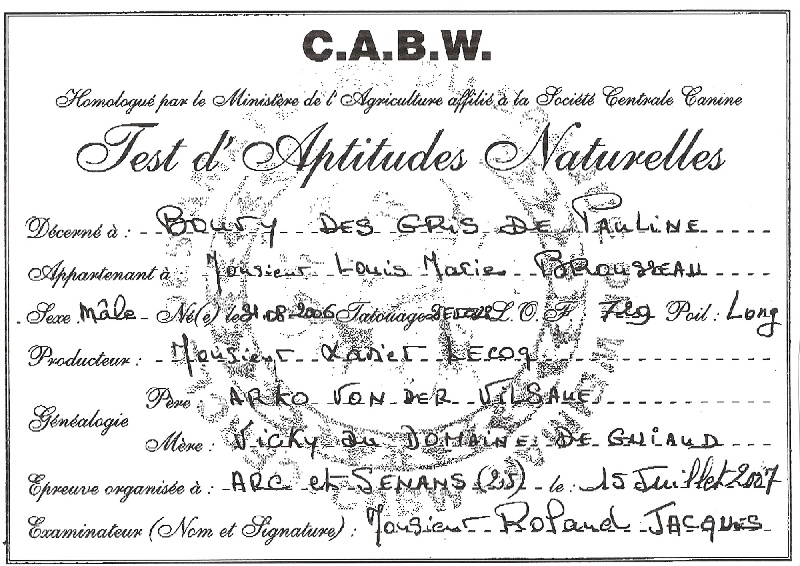 C.A.B.W.
Homologué par le Ministère de l'Agriculture affilié à la Société Centrale Canine
Test d'Aptitudes Naturelles
Décerné à : DES GRIS DE PAULINE
Appartenant à : Monsieur Louis Marie BROUSSEAU
Sexe Mâle Né(e) le 31.08.2006 Tatouage L.O.F. : 729 Poil : Long
Producteur : Monsieur Xavier LECOQ
Généalogie
Père : ARKO VON DER VILSAUE
Mère : Vicky du DOMAINE DE GUIAUD
Epreuve organisée à : ARC et SENANS (25) le : 15 Juillet 2007
Examinateur (Nom et Signature) : Monsieur Roland JACQUES